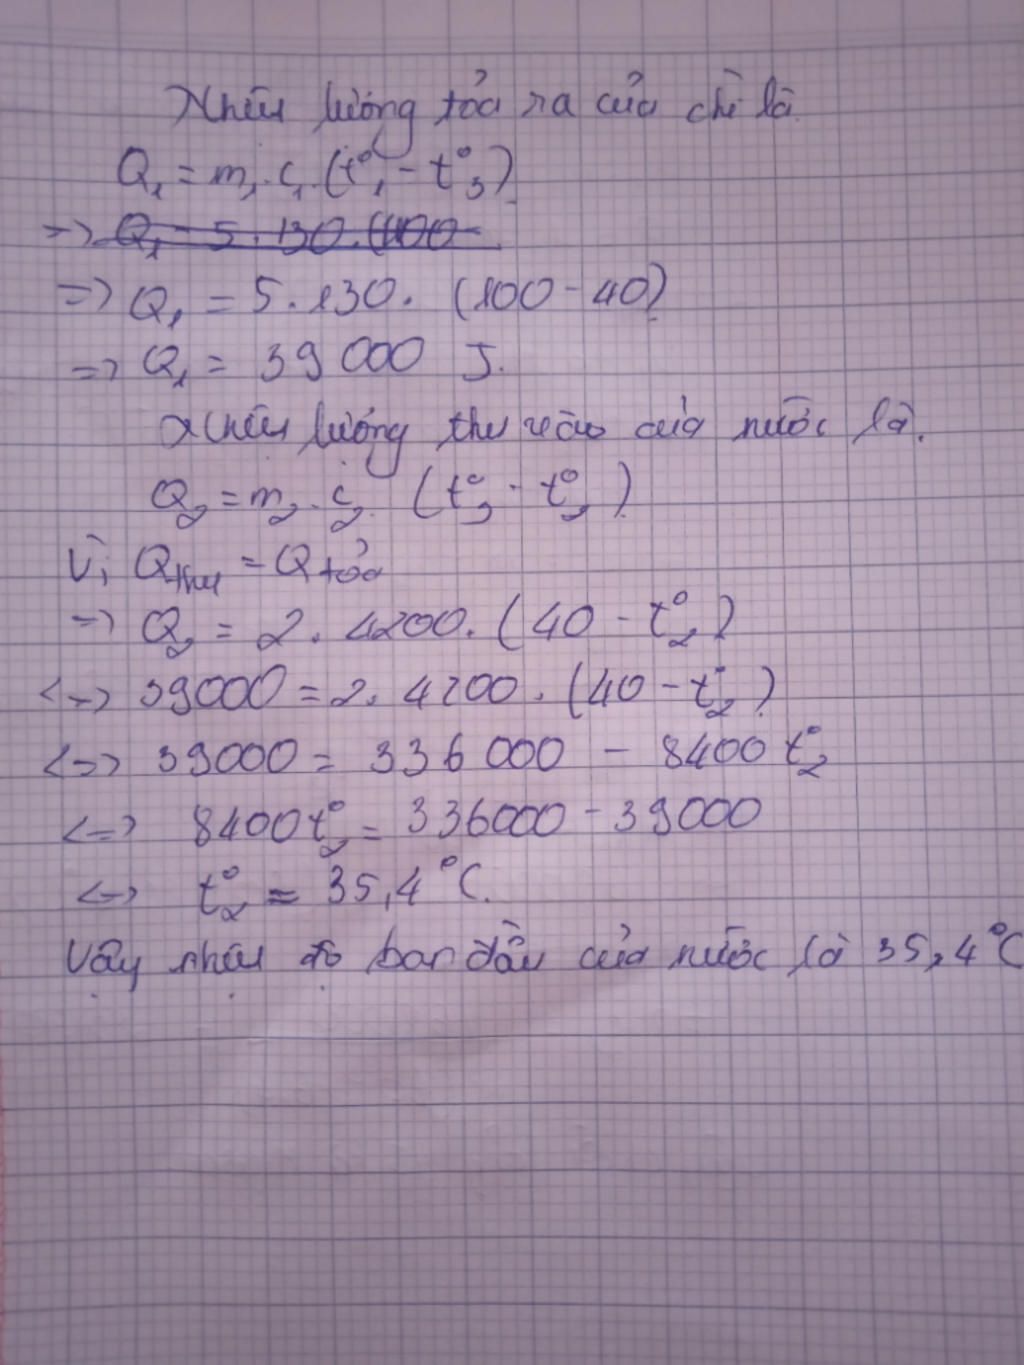 Nhiệt lượng tỏa ra của chì là
Q₁ = m₁.c₁.(t°₁ - t°₃)
=> Q₁ = 5.130.(100
=> Q₁ = 5.130.(100 - 40)
=> Q₁ = 39 000 J.
Nhiệt lượng thu vào của nước là.
Q₂ = m₂.c₂.(t°₃ - t°₂)
Vì Qthu = Q tỏa
=> Q₂ = 2.4200.(40 - t°₂)
<=> 39000 = 2.4200.(40 - t°₂)
<=> 39000 = 336 000 - 8400 t°₂
<=> 8400t°₂ = 336000 - 39000
<=> t°₂ ≈ 35,4°C.
Vậy nhiệt độ ban đầu của nước là 35,4°C